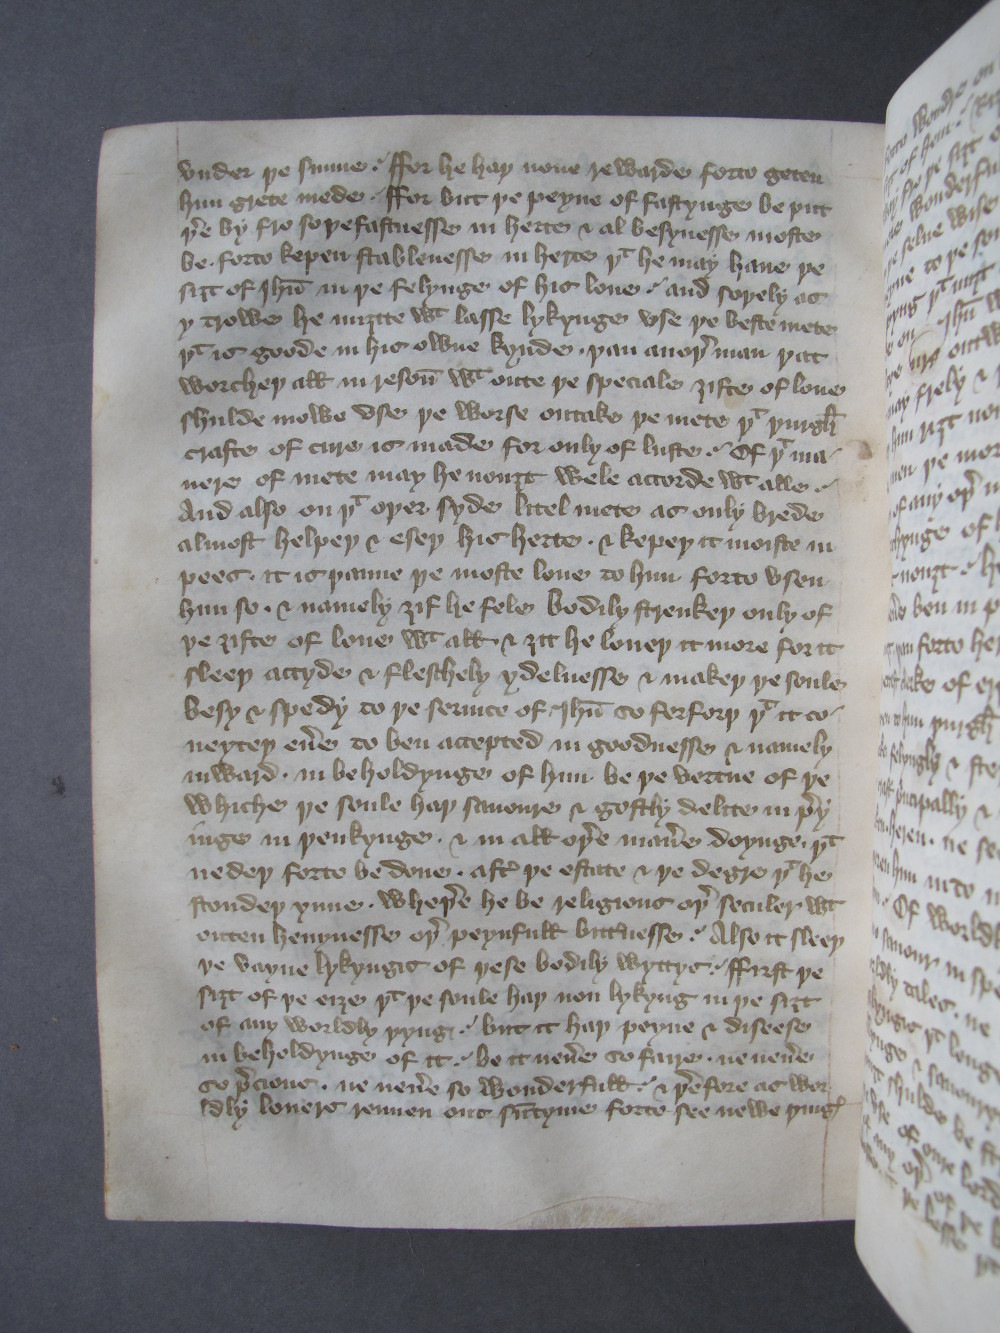 vnder þe sunne ⸵ ffor he haþ none rewarde forto geten
him grete mede · ffor but þe peyne of fastynge be put
þ̉e by fro soþefastnesse in herte ⁊ al besynesse moste
be · forto kepen stablenesse in herte þͭ he may haue þe
siȝt of Jhū in þe felynge of his loue ⸵ and soþely as
y trowe he miȝtte wͭ lasse lykynge vse þe beste mete
þͭ is goode in his owne kynde · þan anoþ̉ man þat
worcheþ all in resoū wͭ oute þe speciale ȝifte of loue
schulde mowe vse þe worse outtake þe mete þͭ þurgh
crafte of cure is made for only of luste ⸵ Of þͭ ma-
nere of mete may he nouȝt wele accorde wͭ alle ⸵
And also on þͭ oþer syde litel mete as only brede
almost helpeþ ⁊ eseþ his herte · ⁊ kepeþ it moiste in
pees · it is þanne þe moste loue to him forto vsen
him so · ⁊ namely ȝif he fele bodily strenkeþ only of
þe ȝifte of loue wͭ all · ⁊ ȝit he loueþ it more for it
sleeþ accyde ⁊ fleschely ydelnesse ⁊ makeþ þe soule
besy ⁊ spedy to þe seruice of Jhū so ferforþ þͭ it co-
neyteþ eủe to ben accepted in goodnesse ⁊ namely
inward · in beholdynge of him be þe vertue of þe
whiche þe soule haþ sauoure ⁊ gostly delite in p̉y
inge in þenkynge · ⁊ in all oþ̉e man̉e doynge þͭ
nedeþ forto be done · aft̉ þe estate ⁊ þe degre þͭ he
stondeþ ynne · wheþ̉e he be religious oþ̉ seculer wͭ
outen heuynesse oþ̉ peynfull bitt̉nesse ⸵ Also it sleeþ
þe vayne lykyngis of þese bodily wyttys ⸵ ffirst þe
siȝt of þe eiȝe þͭ þe soule haþ non lykyng in þe siȝt
of any worldly þyng ⸵ but it haþ peyne ⁊ diseese
in beholdynge of it ⸵ be it neủe so faire · ne neủe
so p̉cious · ne neủe so wonderfull ⸵ ⁊ þ̉efore as wor-
ldly louers rennen out sūtyme forto see newe þinḡ